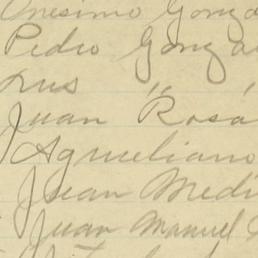 Onesimo Gonza
Pedro Gonza
rus " "
Juan Rosa
Aqueliano
Juan Medi
Juan Manuel